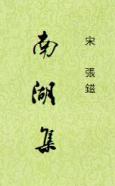 宋 張鎡
南湖集